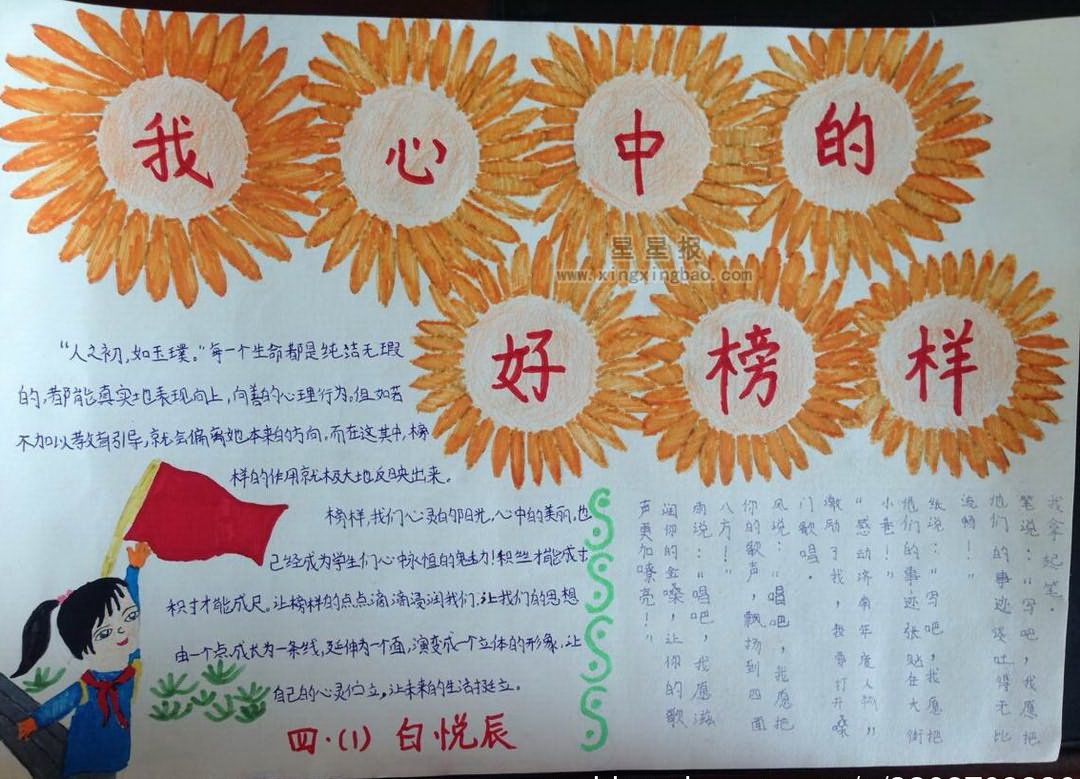 我心中的
好榜样
星星报
www.xingxingbao.com
“人之初,如玉璞。”每一个生命都是纯洁无瑕
的,都能真实地表现向上,向善的心理行为。但如若
不加以教育引导,就会偏离她本来的方向,而在这其中,榜
样的作用就极大地反映出来。
榜样,我们心灵的阳光,心中的美丽,也
已经成为学生们心中永恒的魅力!积丝才能成寸
积寸才能成尺。让榜样的点点滴滴浸润我们,让我们的思想
由一个点,成长为一条线,延伸为一个面,演变成一个立体的形象,让
自己的心灵伫立,让未来的生活挺立。
四·(1) 白悦辰
我拿起笔。
笔说:“写吧,我愿把
他们的事迹谈吐得无比
流畅!”
纸说:“写吧,我愿把
他们的事迹张贴在大街
小巷!”
“感动济南年度人物”
激励了我,我要打开嗓
门歌唱。
风说:“唱吧,我愿把
你的歌声,飘扬到四面
八方!”
雨说:“唱吧,我愿滋
润你的金嗓,让你的歌
声更加嘹亮!”